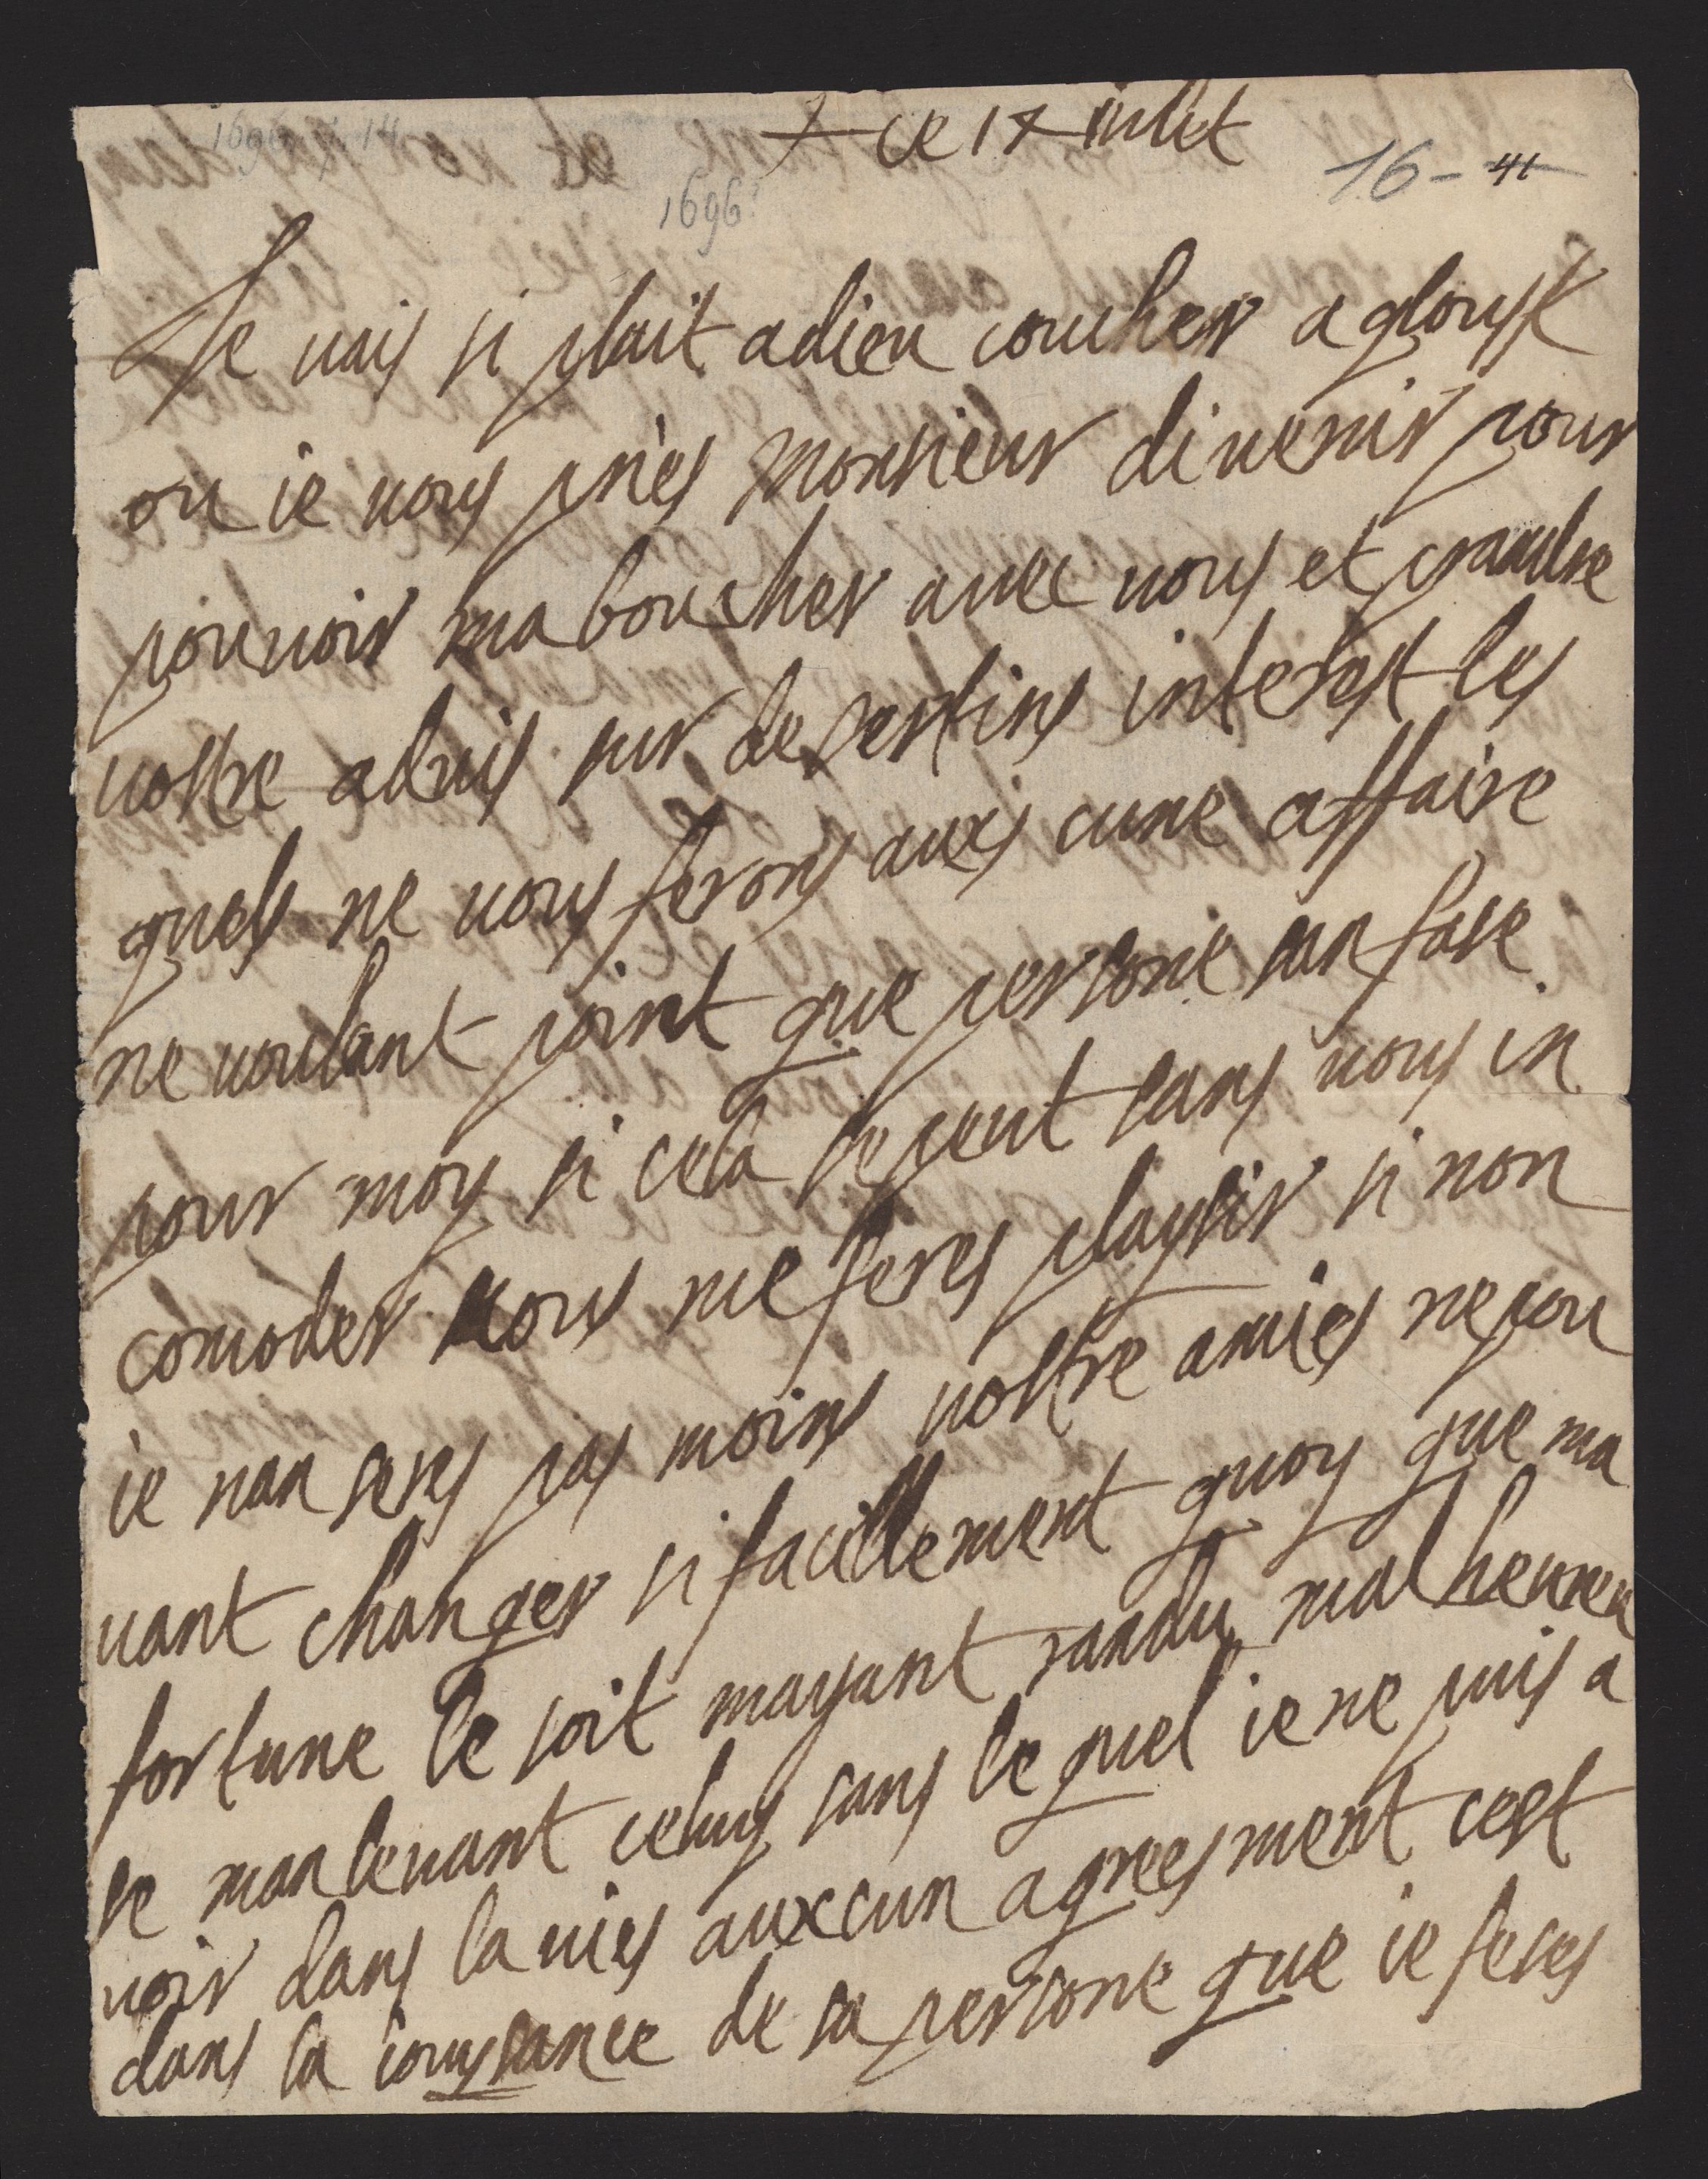 1696 j. 14
ce 14 iulet
16- 41
1696?
Je vais si plait a dieu coucher a
ou ie vous priés Monsieur di venir pour
pouvoir ma boucher avec vous et prandre
vostre advis sur de sertins interest les
quels ne vous feront aucune affaire
ne voulant point que persone san fase
pour moy si cela se peut sans vous in
comoder vous me ferés playsir si non
ie nan serés pas moins vostre amiés ne pou
vant changer si facillement quoy que ma
fortune le soit mayant randu malheureu
se man levant celuy sans le quel ie ne puis a
voir dans la viés auxcun agreesment cest
dans la de sa persone que ie ferés